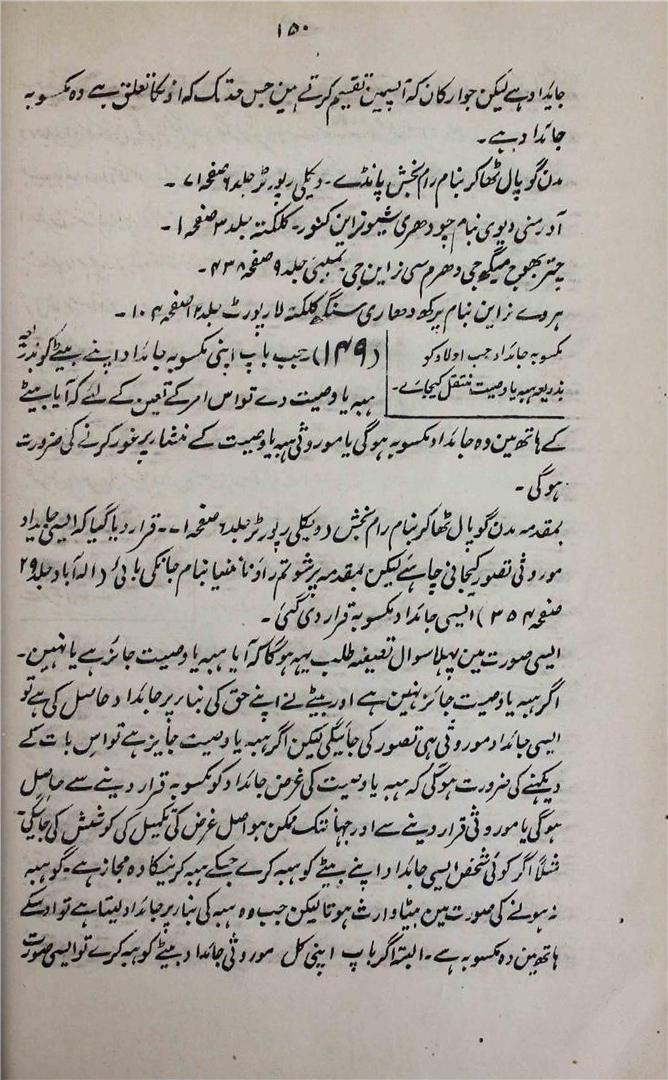 ۱۵۰
جایداد ہے لیکن جو ارکان کہ آپسمین تقسیم کرتے ہین جس حد تک کہ اونکا تعلق ہے وہ مکسوبہ
جائداد ہے۔
مدن گوپال ٹھاکر بنام رام بخش پانڈے۔ ویکلی رپورٹر جلد ۶ صفحہ ۷۱۔
آدرمنی دیوی بنام چودھری شیو نراین کنور۔ کلکتہ جلد ۳ صفحہ ۱۔
چتر بھوج میگھ جی دھرم سی نراین جی بمبئی جلد ۹ صفحہ ۴۳۸۔
ہردے نراین بنام پرکھ دھاری سنگھ کلکتہ لا رپورٹ جلد ۱۲ صفحہ ۱۰۴۔
مکسوبہ جائداد جب اولاد کو
بذریعہ ہبہ یا وصیت منتقل کیجائے۔
(۱۴۹) جب باپ اپنی مکسوبہ جائداد اپنے بیٹے کو بذریعہ
ہبہ یا وصیت دے تو اس امر کے تعین کے لئے کہ آیا بیٹے
کے ہاتھ مین وہ جائداد مکسوبہ ہوگی یا موروثی ہبہ یا وصیت کے منشا پر غور کرنے کی ضرورت
ہوگی۔
بمقدمہ مدن گوپال ٹھاکر بنام رام بخش (ویکلی رپورٹر جلد ۶ صفحہ ۷۱)۔ قرار دیا گیا کہ ایسی جایداد
موروثی تصور کیجانی چاہئے لیکن بمقدمہ پرشوتم راؤ بنام جانکی بائی (الہ آباد جلد ۲۹
صفحہ ۳۵۴) ایسی جائداد مکسوبہ قرار دی گئی۔
ایسی صورت مین پہلا سوال تصفیہ طلب یہہ ہوگا کہ آیا ہبہ یا وصیت جائز ہے یا نہین۔
اگر ہبہ یا وصیت جائز نہین ہے اور بیٹے نے اپنے حق کی بناء پر جائداد حاصل کی ہے تو
ایسی جائداد موروثی ہی تصور کی جائیگی لیکن اگر ہبہ یا وصیت جایز ہے تو اس بات کے
دیکھنے کی ضرورت ہوگی کہ ہبہ یا وصیت کی غرض جائداد کو مکسوبہ قرار دینے سے حاصل
ہوگی یا موروثی قرار دینے سے اور جہانتک ممکن ہو اصل غرض کی تکمیل کی کوشش کی جائیگی۔
مثلاً اگر کوئی شخص ایسی جائداد اپنے بیٹے کو ہبہ کرے جسکے ہبہ کرنیکا وہ مجاز ہے۔ گو ہبہ
نہ ہونے کی صورت مین بیٹا وارث ہوتا لیکن جب وہ ہبہ کی بناء پر جائداد لیتا ہے تو اوسکے
ہاتھ مین وہ مکسوبہ ہے۔ البتہ اگر باپ اپنی کل موروثی جائداد بیٹے کو ہبہ کرے تو ایسی صورت